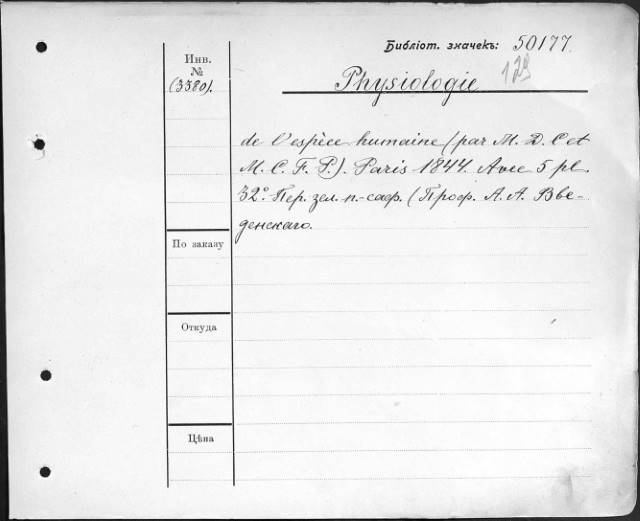 Библіот. значекъ: 50177.
129
Инв.
№
(3380).
Physiologie
de l'espèce humaine (par M. D. C et
M. C. F. P.). Paris 1844. Avec 5 pl.
32°. Пер. зел. п.-саф. (Проф. А. А. Вве-
денскаго.
По заказу
Откуда
Цѣна